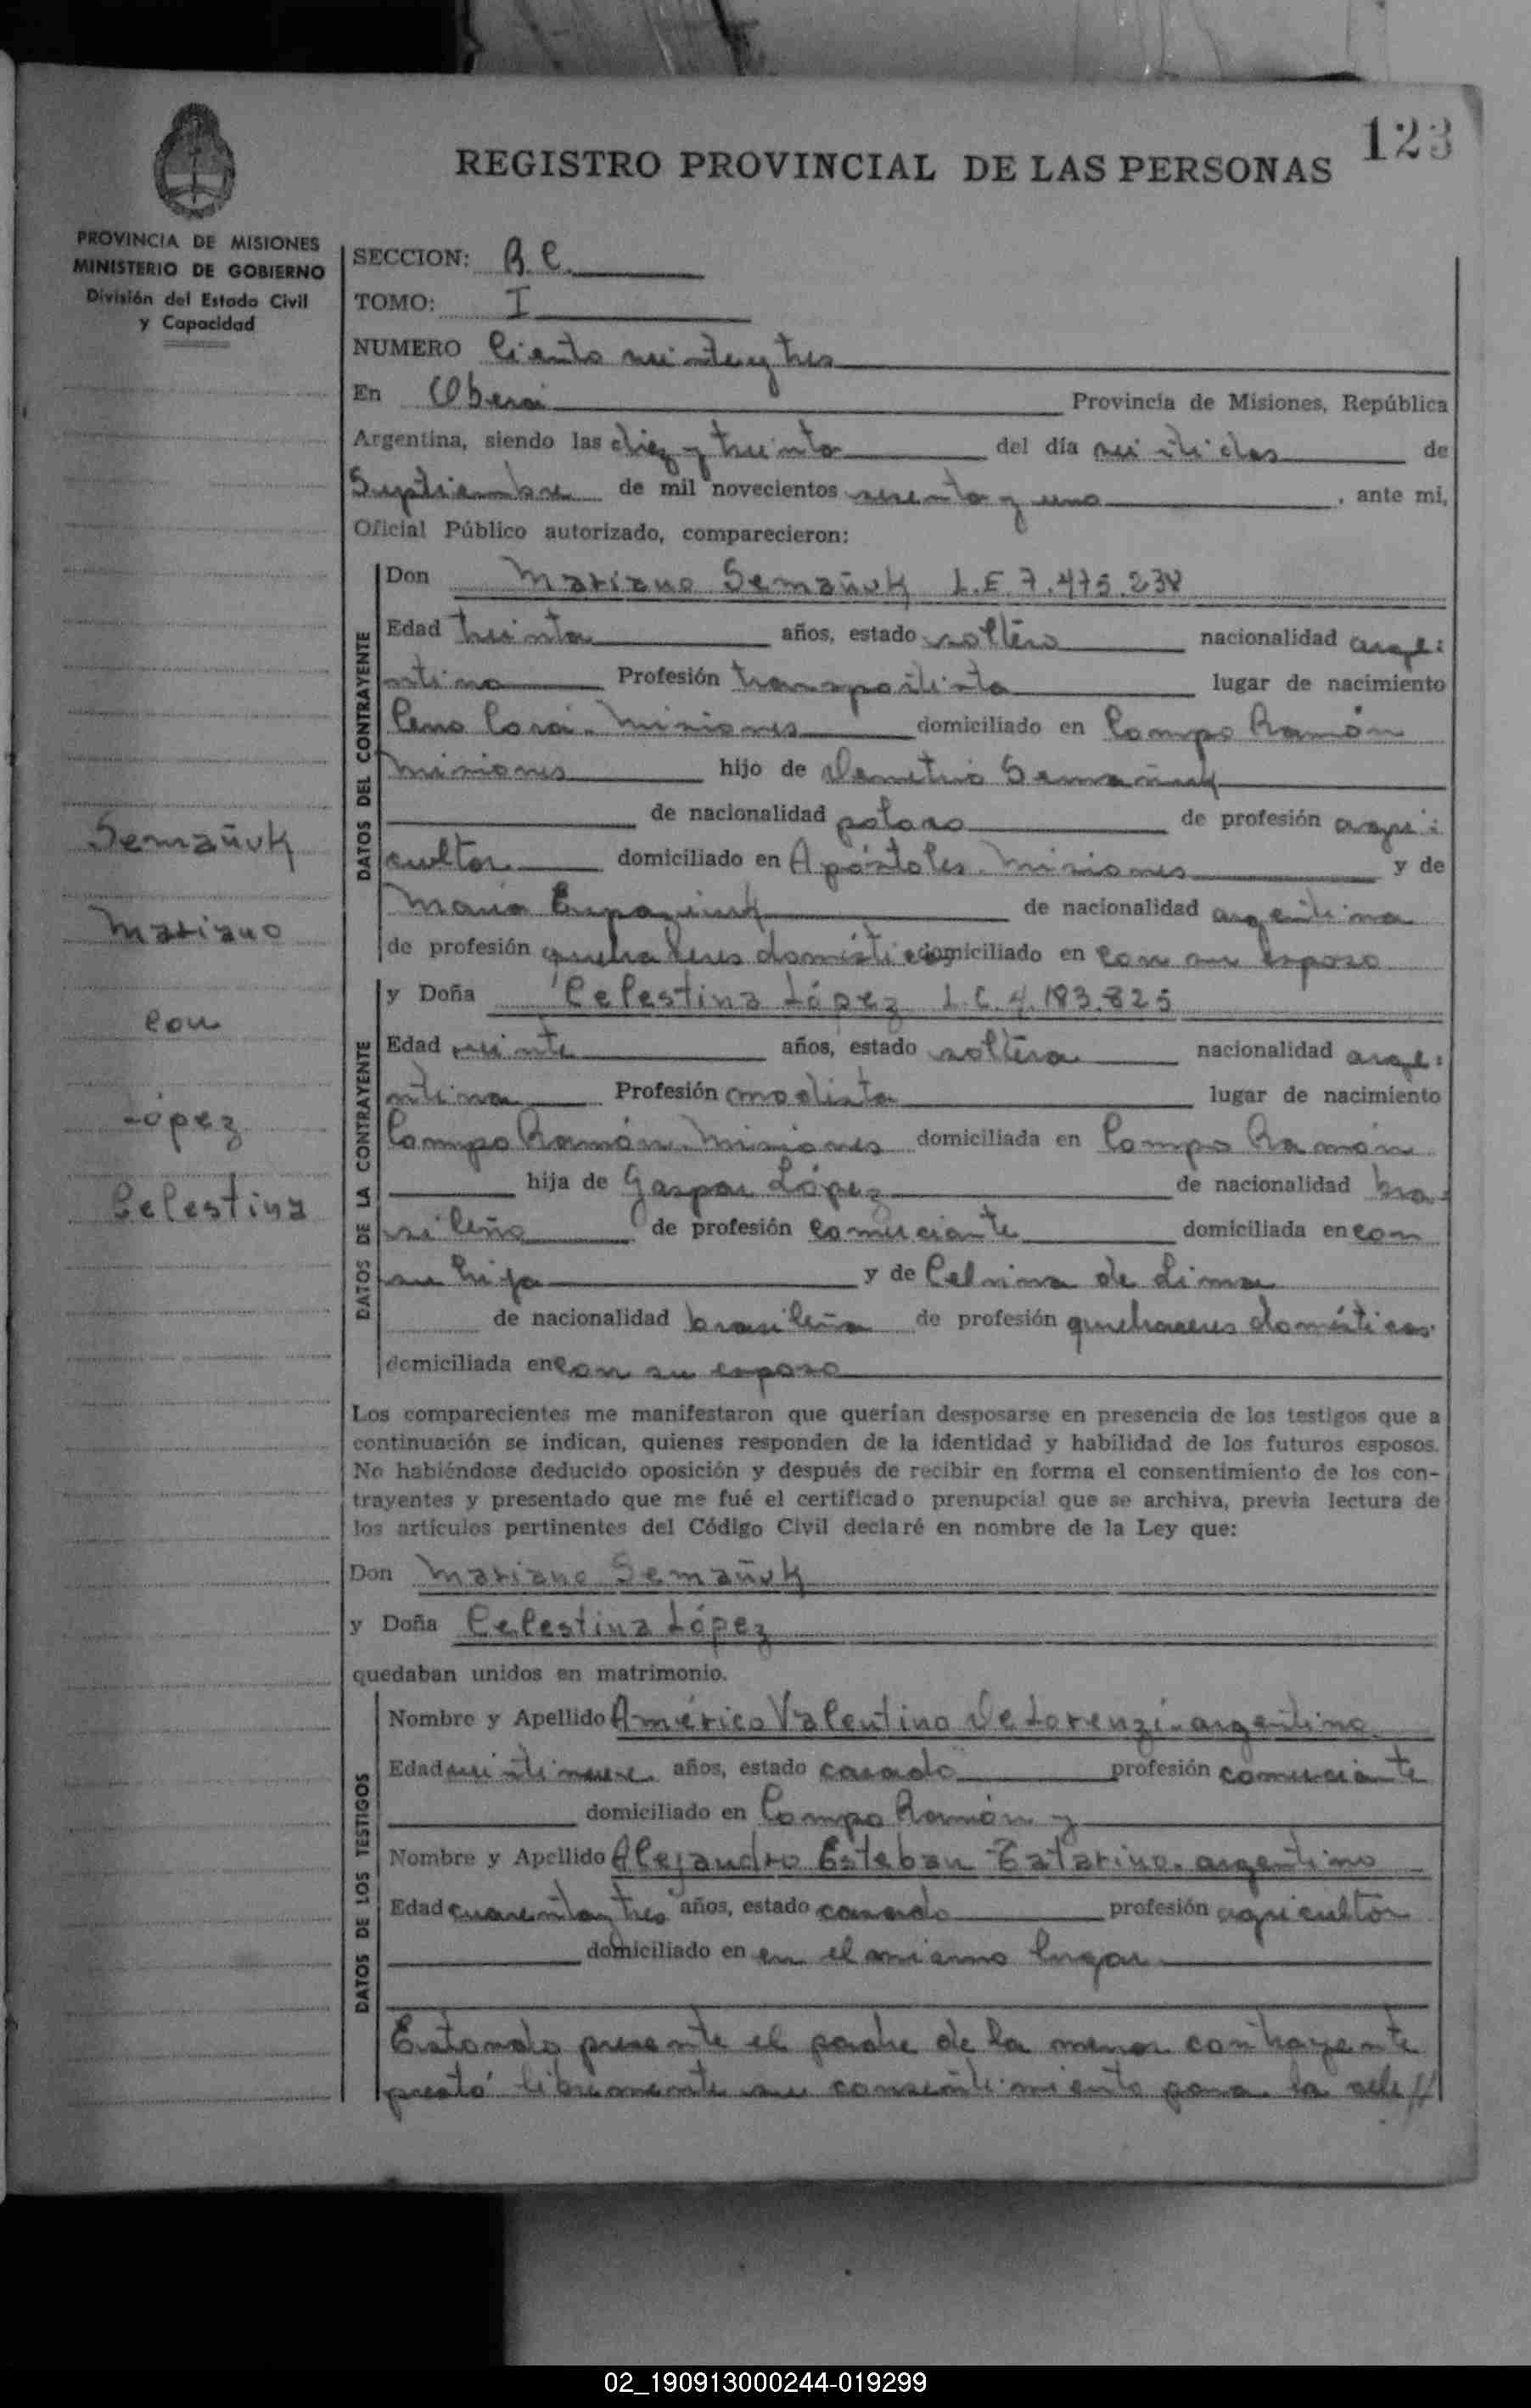 123
REGISTRO PROVINCIAL DE LAS PERSONAS
PROVINCIA DE MISIONES
MINISTERIO DE GOBIERNO
División del Estado Civil
y Capacidad
SECCION:
TOMO: I
NUMERO Ciento veintey tres
En Oberá Provincia de Misiones, República
Argentina, siendo las diez y treinta del día veintidos de
Septiembre de mil novecientos sesenta y uno, ante mi,
Oficial Público autorizado, comparecieron:
DATOS DEL CONTRAYENTE
Don Mariano Semañuk L.E. 7.475.238
Edad treinta años, estado soltero nacionalidad arge:
ntino Profesión transportista lugar de nacimiento
Cerro Corá. Misiones domiciliado en Campo Ramón
Misiones hijo de Demetrio Semañuk
de nacionalidad polaco de profesión agri:
cultor domiciliado en Apóstoles. Misiones y de
María de nacionalidad argentina
de profesión quehaceres domésticos domiciliado en con su esposo
Semañuk
Mariano
con
López
Celestina
DATOS DE LA CONTRAYENTE
y Doña Celestina López L.C. 4.183.825
Edad veinte años, estado soltera nacionalidad arge:
ntina Profesión modista lugar de nacimiento
Campo Ramón. Misiones domiciliada en Campo Ramón
hija de Gaspar López de nacionalidad bra-
sileño de profesión comerciante domiciliada en con
su hija y de Celnina de Lima
de nacionalidad brasileña de profesión quehaceres domésticos.
domiciliada en con su esposo
Los comparecientes me manifestaron que querían desposarse en presencia de los testigos que a
continuación se indican, quienes responden de la identidad y habilidad de los futuros esposos.
No habiéndose deducido oposición y después de recibir en forma el consentimiento de los con-
trayentes y presentado que me fué el certificado prenupcial que se archiva, previa lectura de
los artículos pertinentes del Código Civil declaré en nombre de la Ley que:
Don Mariano Semañuk
y Doña Celestina López
quedaban unidos en matrimonio.
DATOS DE LOS TESTIGOS
Nombre y Apellido Américo Valentino De Lorenzi. argentino
Edad veintinueve años, estado casado profesión comerciante
domiciliado en Campo Ramón y
Nombre y Apellido Alejandro Esteban Tatarino. argentino
Edad cuarentay tres años, estado casado profesión agricultor
domiciliado en en el mismo lugar
Estando presente el padre de la menor contrayente
prestó libremente su consentimiento para la cele//
02_190913000244-019299